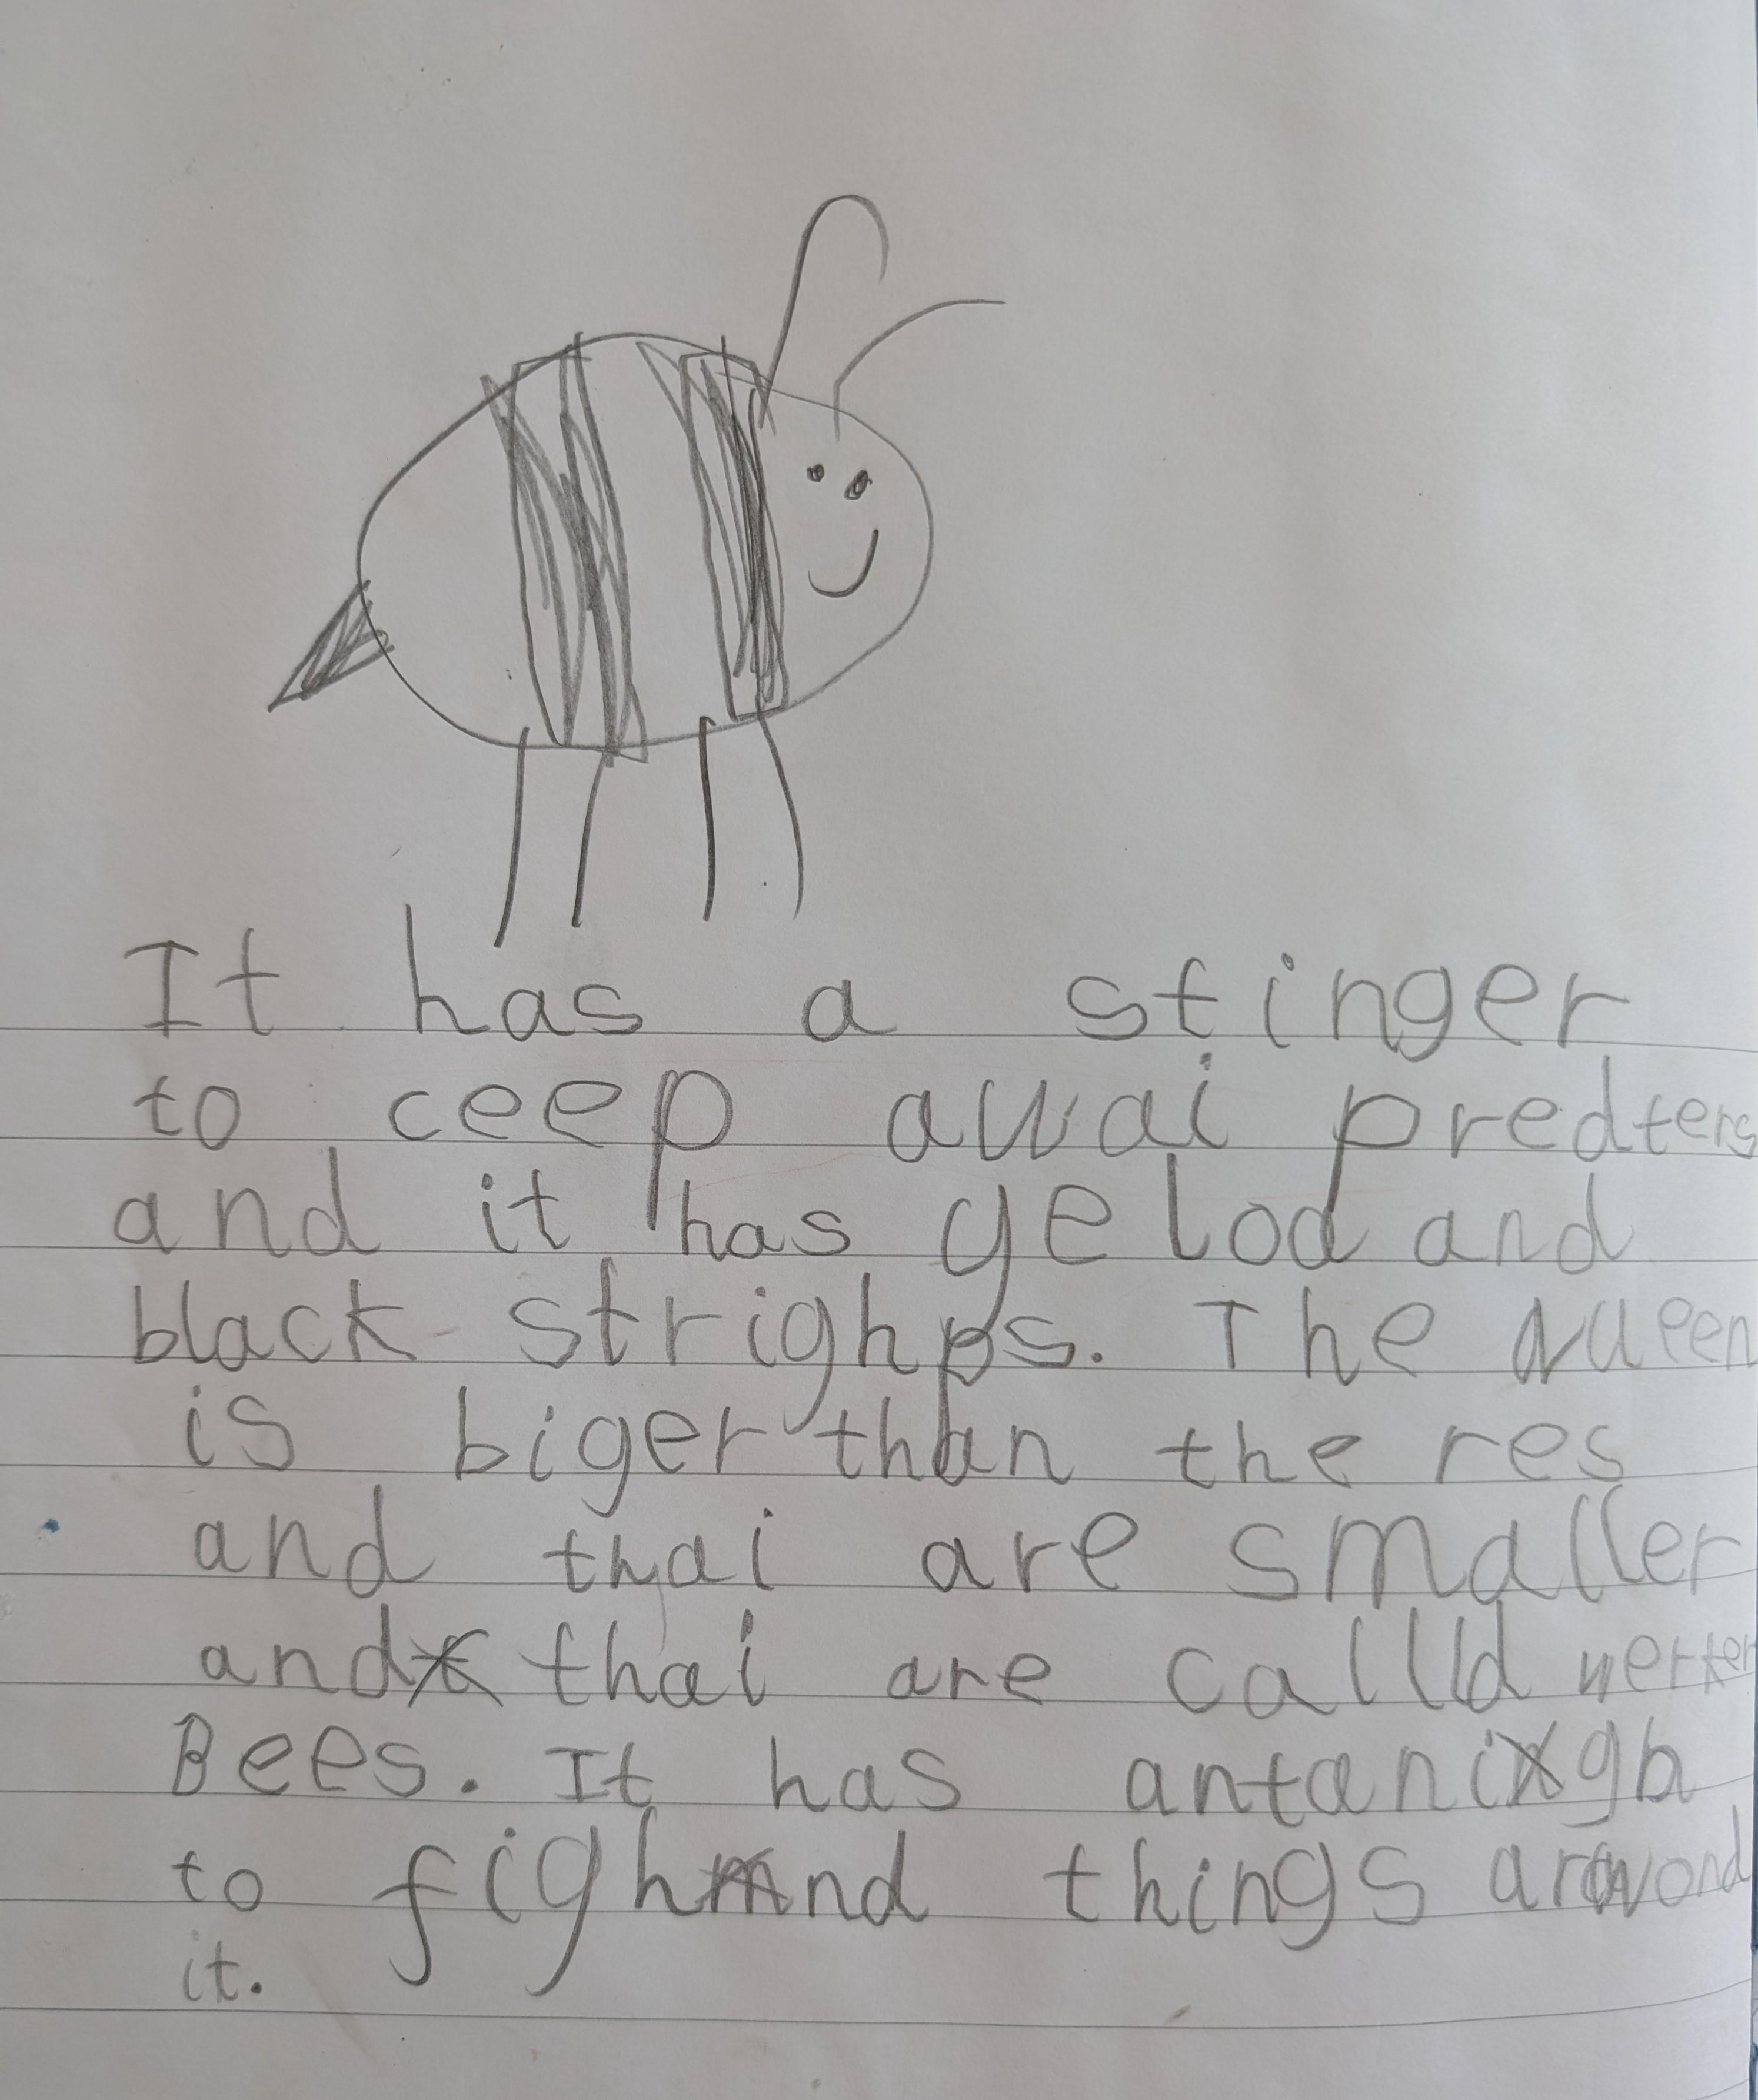 It has a stinger
to ceep awai predters
and it has yelod and
black strighps. The queen
is biger than the res
and thai are smaller
and thai are callld werker
Bees. It has antanigh
to fighnd things arwond
it.